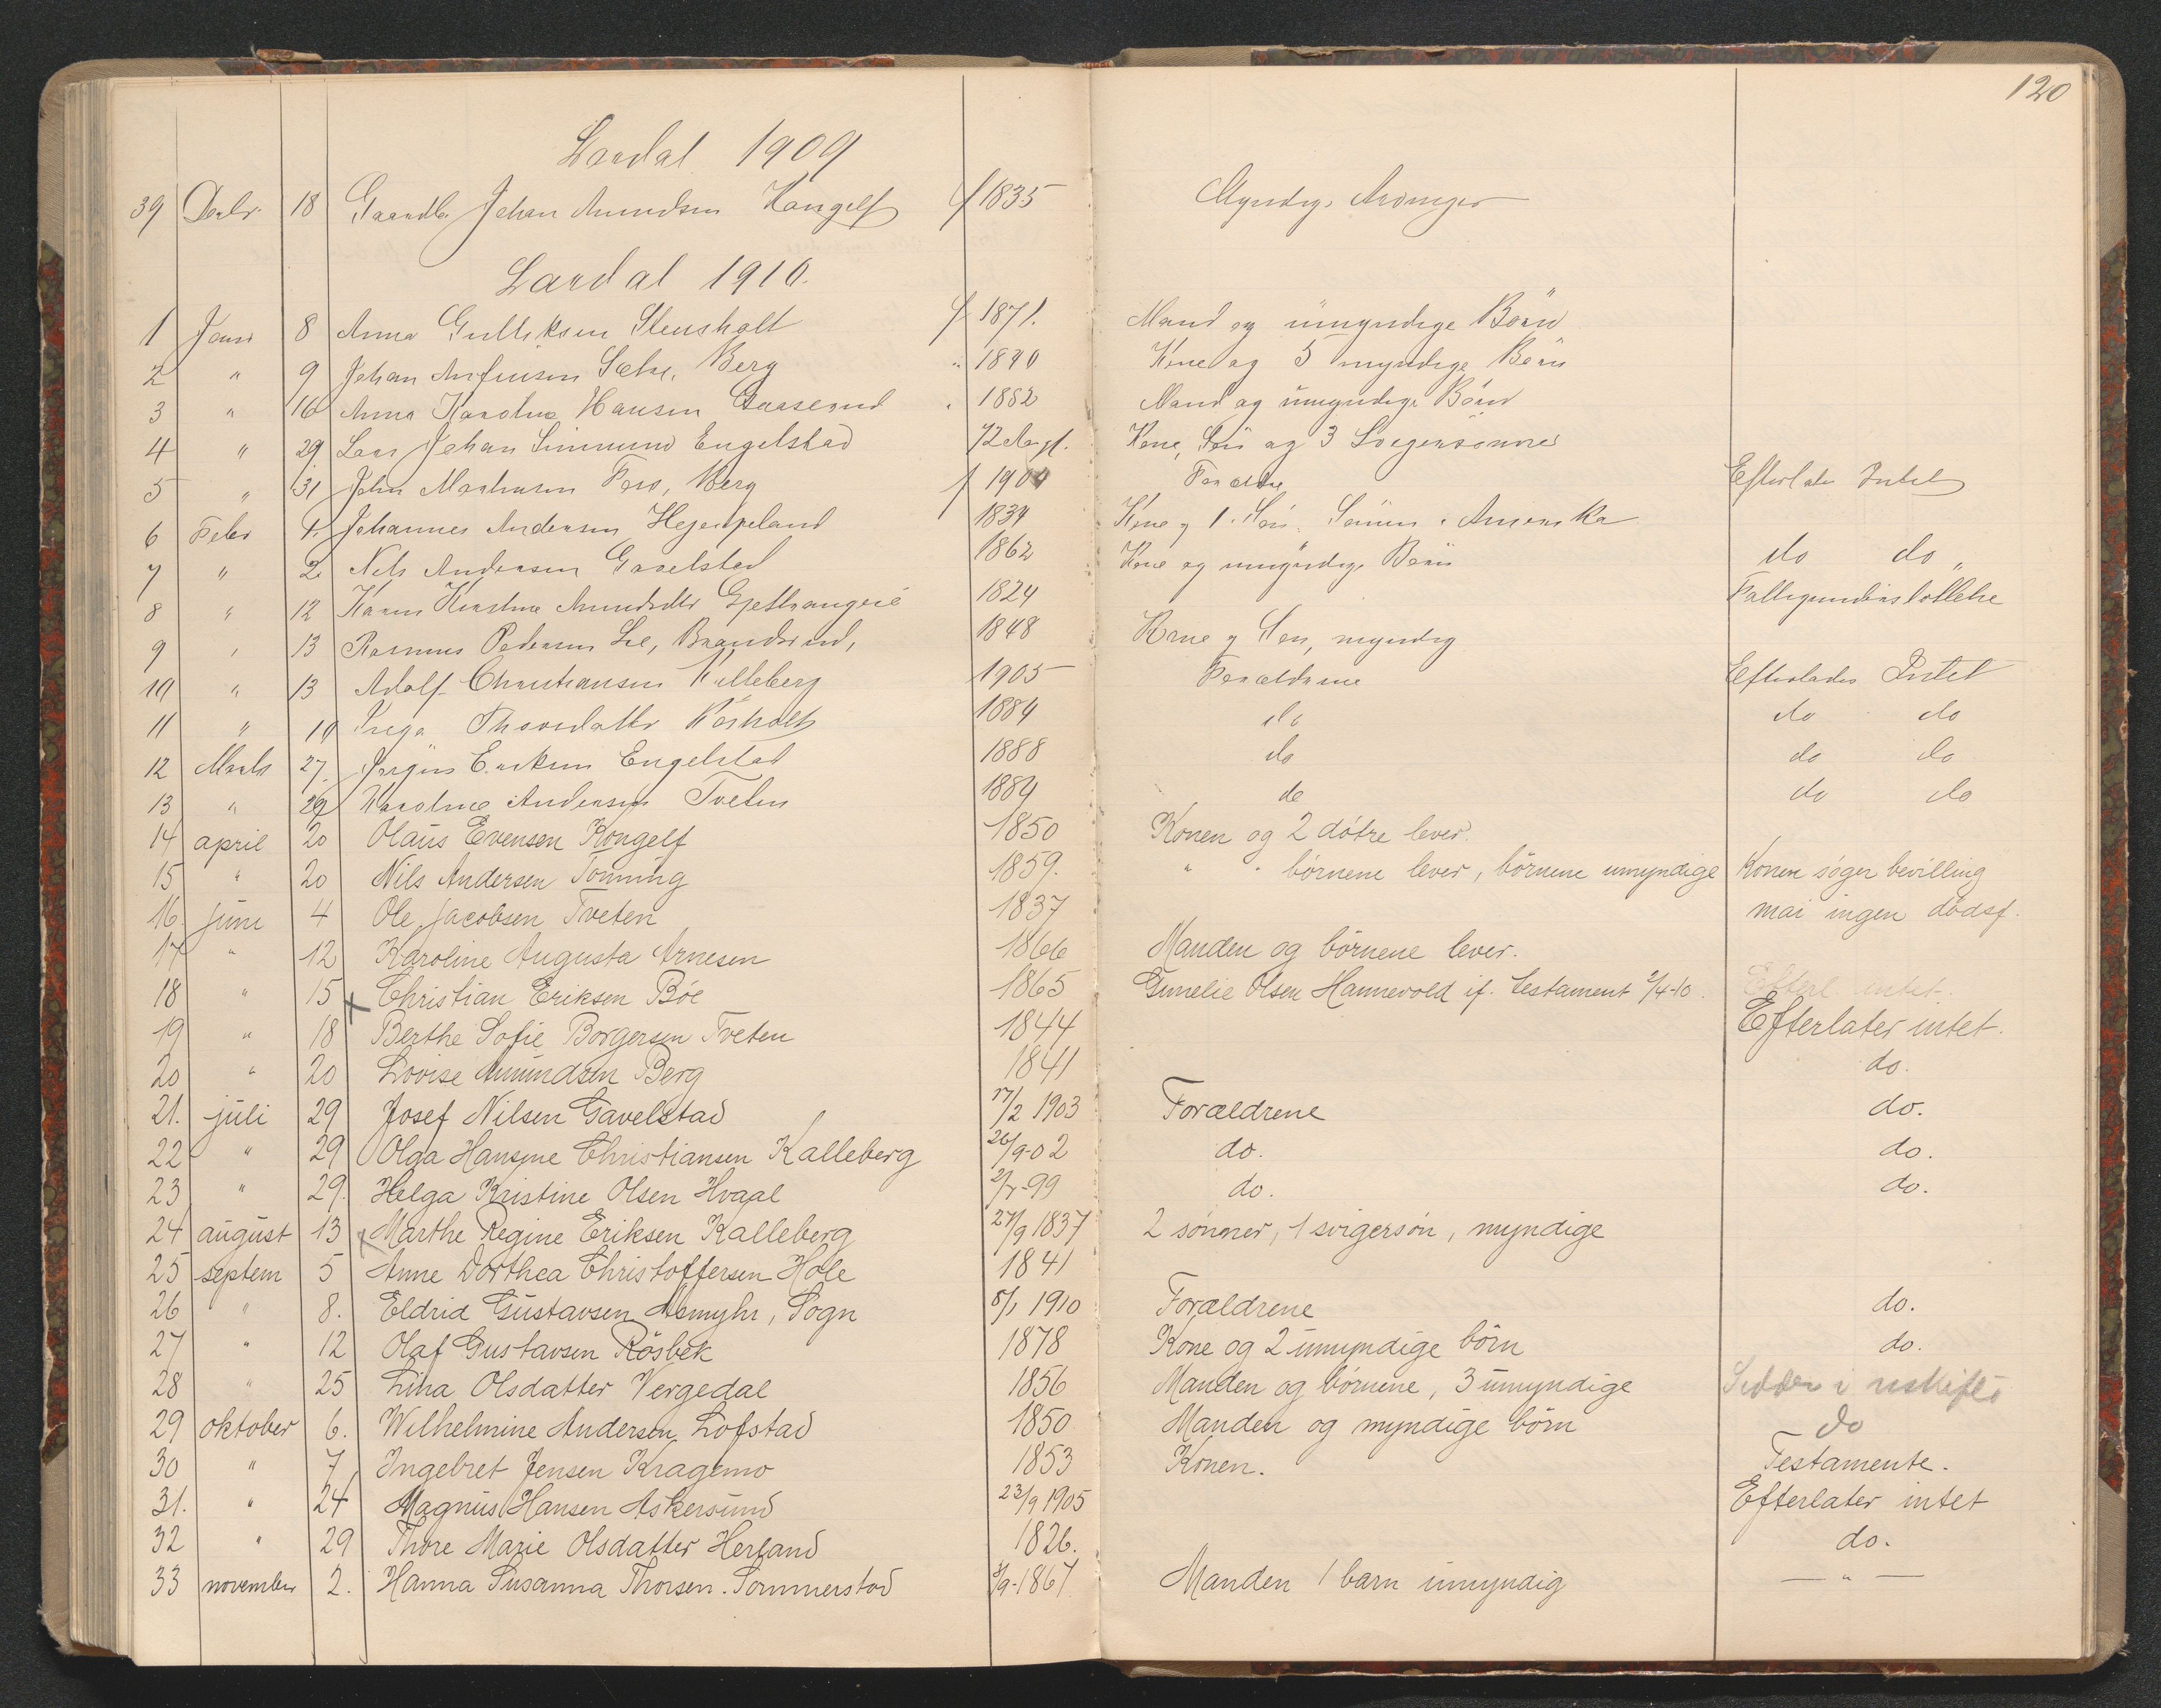 120
Lardal 1909
39 Decbr. 18 Gaardbr. Johan Amundsen Kongelf f 1835 Myndige Arvinger
Lardal 1910.
1 Janr 8 Anna Gulliksen Stensholt f 1871. Mand og umyndige Børn
2 " 9 Johan Arfinsen Sætre, Berg " 1840 Kone og 5 myndige Børn
3 " 16 Anna Karoline Hansen Gaaserud " 1882 Mand og umyndige Børn
4 " 29 Lars Johan Engelstad 72 Kone, Søn og 3 Svigersønner
5 " 31 John Berg f 1904 Forældre Efterlader Intet
6 Febr 1. Johannes Andersen 1834 Kone og 1 Søn. Amerika
7 " 2. Nils Andersen Gavelstad 1862 Kone og umyndige Børn do do "
8 " 12 Karen Kirstine Amundsdtr 1824
9 " 13 Rasmus Pedersen Lie, 1848 Kone og Søn, myndig
10 " 13 Adolf Christiansen Kalleberg 1905 Forældrene Efterlader Intet
11 " 19 Inga Thorsdatter 1884 do do do
12 Marts 27. Jørgen Eriksen Engelstad 1888 do do do
13 " 29 Karoline Andersen Tveten 1884 do do do
14 april 20 Olaus Evensen Kongelf 1850 Konen og 2 døtre lever.
15 " 20 Nils Andersen Tonning 1859. " " børnene lever, børnene umyndige Konen søger bevilling
16. juni 4 Ole Jacobsen Tveten 1837 mai ingen dødsf.
17 " 12 Karoline Augusta Arnesen 1866 Manden og børnene lever.
18 " 15 Christian Eriksen Bøe 1865 Gunelie Olsen Hannevold if. testament 2/4-10. Efterl intet.
19 " 18 Berthe Sofie Borgersen Tveten 1844 Efterlater intet.
20 " 20 Lovise Amundsen Berg 1841 do.
21. juli 29 Josef Nilsen Gavelstad 17/2 1903 Forældrene do.
22 " 29 Olga Hansine Christiansen Kalleberg 26/9-02 do. do.
23 " 29. Helga Kristine Olsen Hvaal -99 do. do.
24 august 13 Marthe Regine Eriksen Kalleberg 27/9 1837 2 sønner, 1 svigersøn, myndige
25 septem 5 Anne Dorthea Christoffersen Hole 1841
26 " 8. Eldrid Gustavsen Asmyhr, Sogn 8/1 1910 Forældrene do.
27 " 12 Olaf Gustavsen Røsbek 1878 Kone og 2 umyndige børn do.
28 " 25 Lina Olsdatter Vergedal 1856 Manden og børnene, 3 umyndige Sidder i uskifte
29 oktober 6. Wilhelmine Andersen Lofstad 1850 Manden og myndige børn do
30 " 7 Ingebret Jensen Kragemo 1853 Konen. Testamente.
31. " 24 Magnus Hansen Askersund 23/9 1905 Efterlater intet
32 " 29 Thore Marie Olsdatter Herland 1826. do.
33 november 2. Hanna Susanna Thorsen. Sommerstad 3/9-1867 Manden 1 barn umyndig — " —